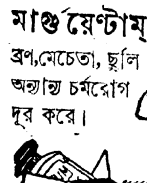 মার্গুয়েণ্টাম্
ব্রণ,মেচেতা, ছুলি
অন্যান্য চর্মরোগ
দূর করে।